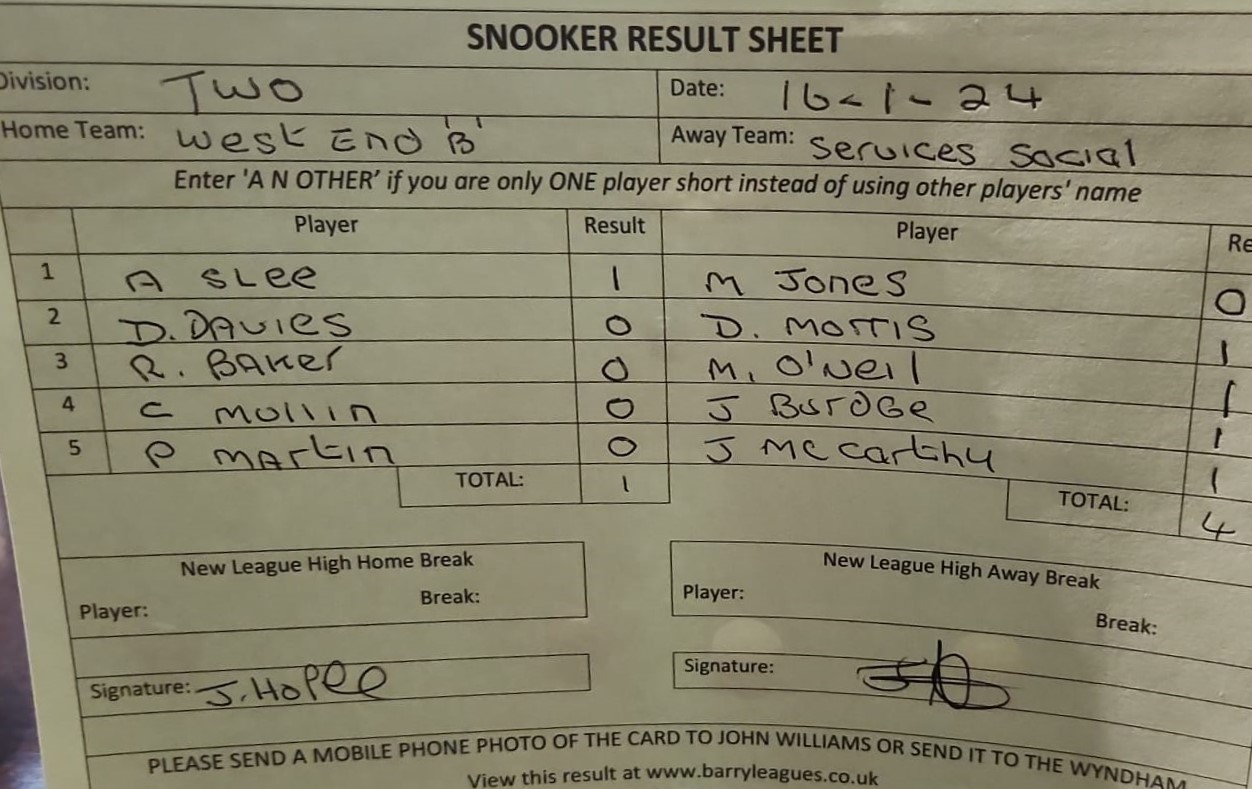 SNOOKER RESULT SHEET
Division: TWO Date: 16-1-24
Home Team: West End 'B' Away Team: Services Social
Enter 'A N OTHER' if you are only ONE player short instead of using other players' name
Player Result Player Re
1 A SLee 1 M Jones 0
2 D. DAVIES 0 D. MORRIS 1
3 R. BAKer 0 M. O'Neil 1
4 C Mullin 0 J BurDGe 1
5 P MARtin 0 J McCarthy 1
TOTAL: 1 TOTAL: 4
New League High Home Break New League High Away Break
Player: Break: Player: Break:
Signature: J. Signature:
PLEASE SEND A MOBILE PHONE PHOTO OF THE CARD TO JOHN WILLIAMS OR SEND IT TO THE WYNDHAM
View this result at www.barryleagues.co.uk